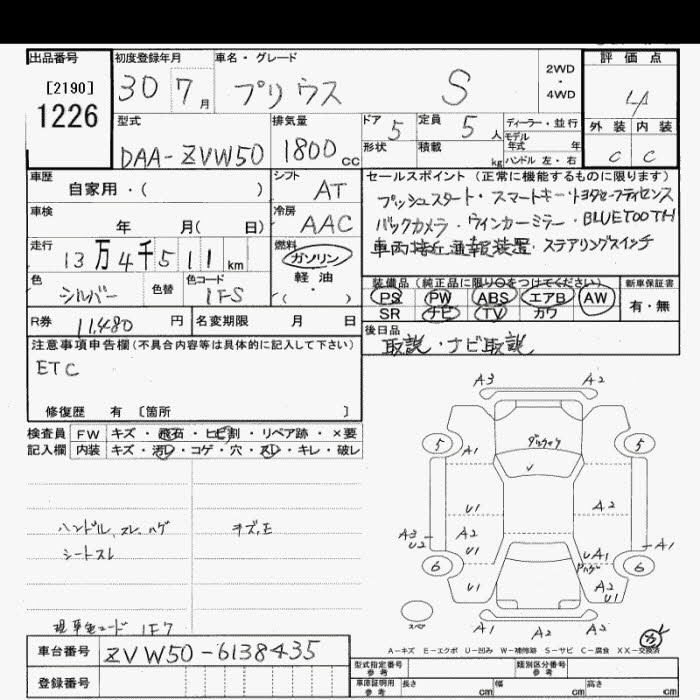 出品番号
[2190]
1226
初度登録年月
30 7 月
車名・グレード
プリウス S
2WD
・
4WD
評価点
4
外装 内装
C C
型式
DAA-ZVW50
排気量
1800 cc
ドア 5
形状
定員 5 人
積載 kg
ディーラー・並行
モデル
年式 年
ハンドル 左・右
車歴
自家用・( )
シフト
AT
車検
年 月( 日)
冷房
AAC
走行
13万4千511 km
燃料
ガソリン
軽油
( )
色
シルバー
色替
色コード
1F5
R券 11,480 円
名変期限 月 日
セールスポイント (正常に機能するものに限ります)
プッシュスタート・スマートキー・トヨタセーフティセンス
バックカメラ・ウインカーミラー・BLUETOOTH
車両接近通報装置・ステアリングスイッチ
装備品 (純正品に限り○をつけてください)
PS PW ABS エアB AW
SR ナビ TV カワ
新車保証書
有・無
後日品
取説・ナビ取説
注意事項申告欄(不具合内容等は具体的に記入して下さい)
ETC
修復歴 有 [箇所 ]
検査員 FW キズ・飛石・ヒビ割・リペア跡・×要
記入欄 内装 キズ・汚レ・コゲ・穴・スレ・キレ・破レ
ハンドル、スレ、ハゲ
シートスレ
キズ,E
現車色コード 1F7
A3 A2
5 5
A1
U1 A2
A3 U2
A2 U1
UA1
A1
6 6
U1
A2 U1
スペア
A1 A2
A-キズ E-エクボ U-凹み W-補修跡 S-サビ C-腐食 XX-交換済
車台番号 ZVW50-6138435
登録番号
型式指定番号
参考
類別区分番号
参考
車庫証明用
参考
長さ cm
幅 cm
高さ cm